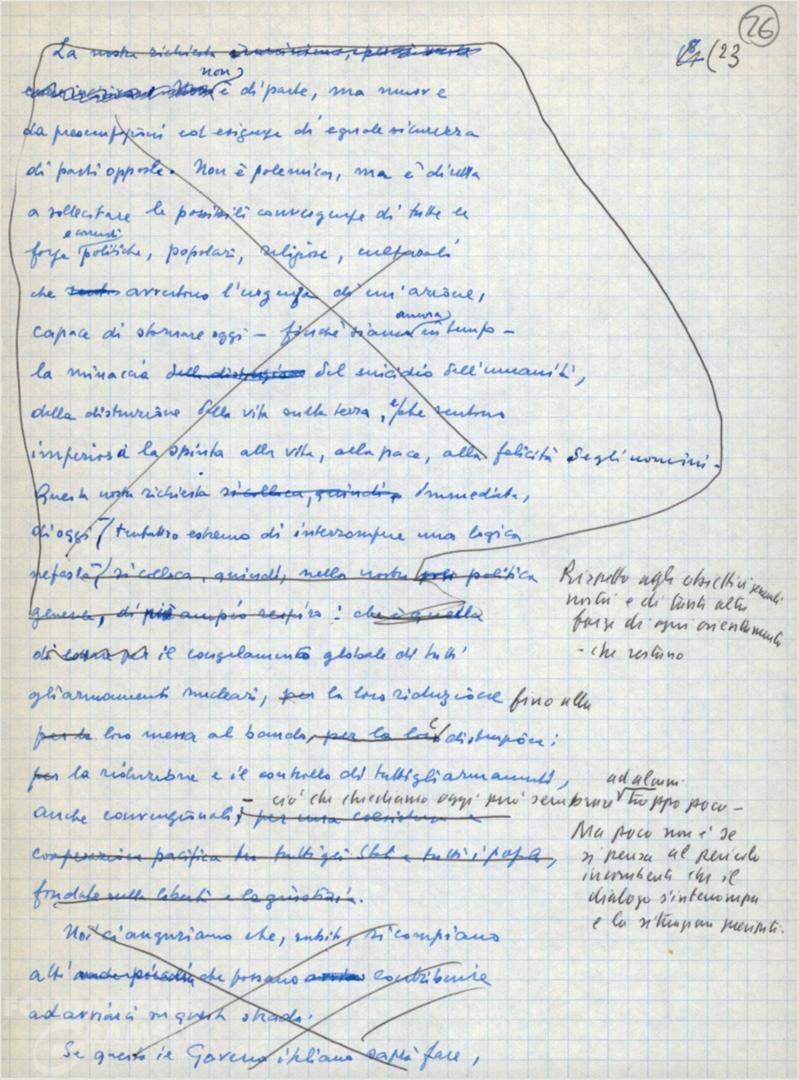 26
(23
La nostra richiesta
non
è di parte, ma muove
da preoccupazioni ed esigenze di eguale sicurezza
di parti opposte. Non è polemica, ma è diretta
a sollecitare le possibili convergenze di tutte le
forze politiche, popolari, religiose, culturali
che avvertono l'urgenza di un'azione,
ancora
capace di stornare oggi – finché siamo in tempo –
la minaccia del suicidio dell'umanità,
della distruzione della vita sulla terra, e che sentono
imperiosa la spinta alla vita, alla pace, alla felicità degli uomini.
Questa nostra richiesta si colloca, quindi, immediata,
di oggi (tentativo estremo di interrompere una logica
nefasta) si colloca, quindi, nella nostra politica
generale, di più ampio respiro: che è quella
di per il congelamento globale di tutti
gli armamenti nucleari, per la loro riduzione fino alla
per la loro messa al bando, per la loro e distruzione;
per la riduzione e il controllo di tutti gli armamenti,
anche convenzionali; per una coesistenza e
cooperazione pacifica tra tutti gli Stati e tutti i popoli,
fondata sulla libertà e la giustizia.
Rispetto agli obiettivi generali
nostri e di tante altre
forze di ogni orientamento
- che restano
ad alcuni
– ciò che chiediamo oggi può sembrare troppo poco –
Ma poco non è se
si pensa al pericolo
incombente che il
dialogo s'interrompa
e la situazione precipiti.
Noi ci auguriamo che, subito, si compiano
atti che possano contribuire
ad avviarci su questa strada.
Se questo il Governo italiano saprà fare,